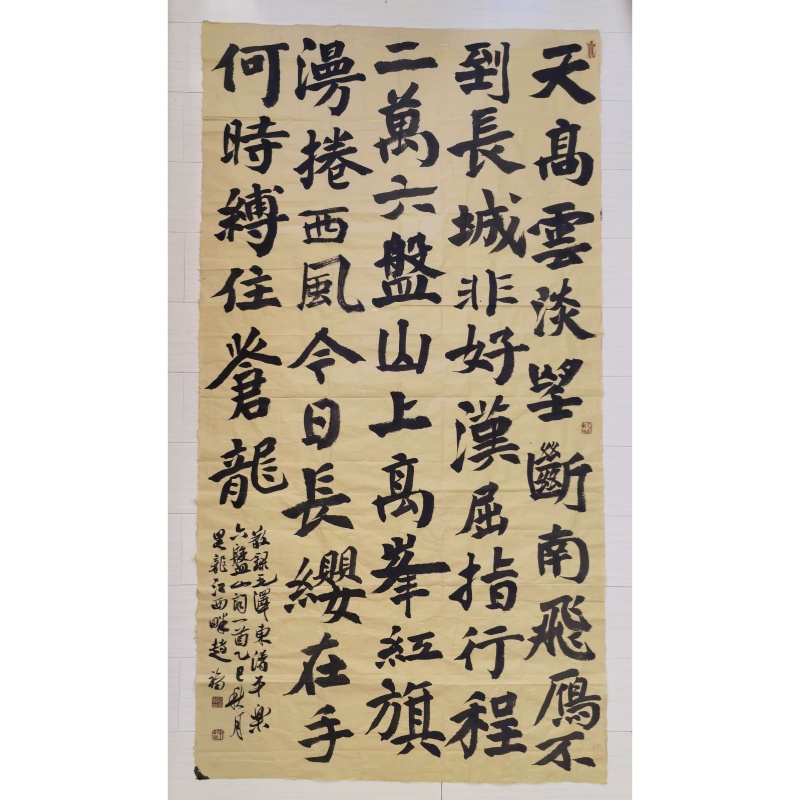 天髙雲淡望斷南飛鴈不
到長城非好漢屈指行程
二萬六盤山上髙峯紅旗
漫捲西風今日長纓在手
何時縛住蒼龍
敬錄毛澤東清平樂
六盤山詞一首乙巳秋月
龍江西畔趙